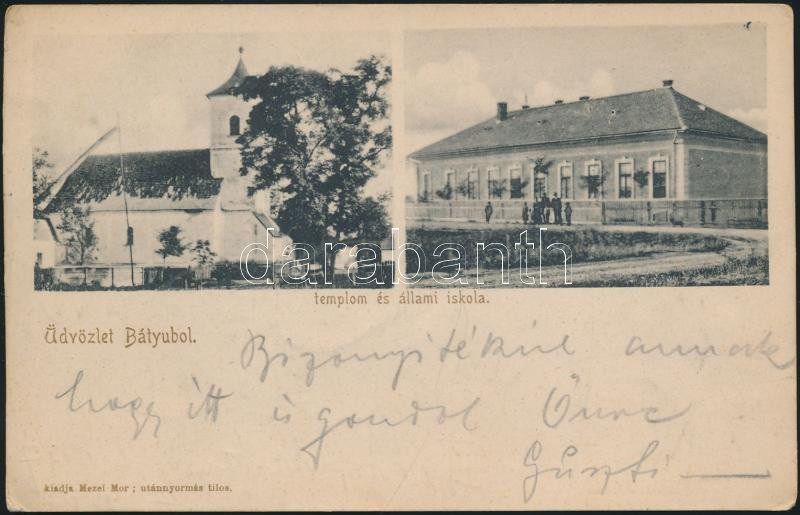 darabanth
templom és állami iskola.
Üdvözlet Bátyubol.
Bizonyitékúl annak
hogy itt is gondol Önre
Guszti
kiadja Mezei Mor ; utánnyormás tilos.